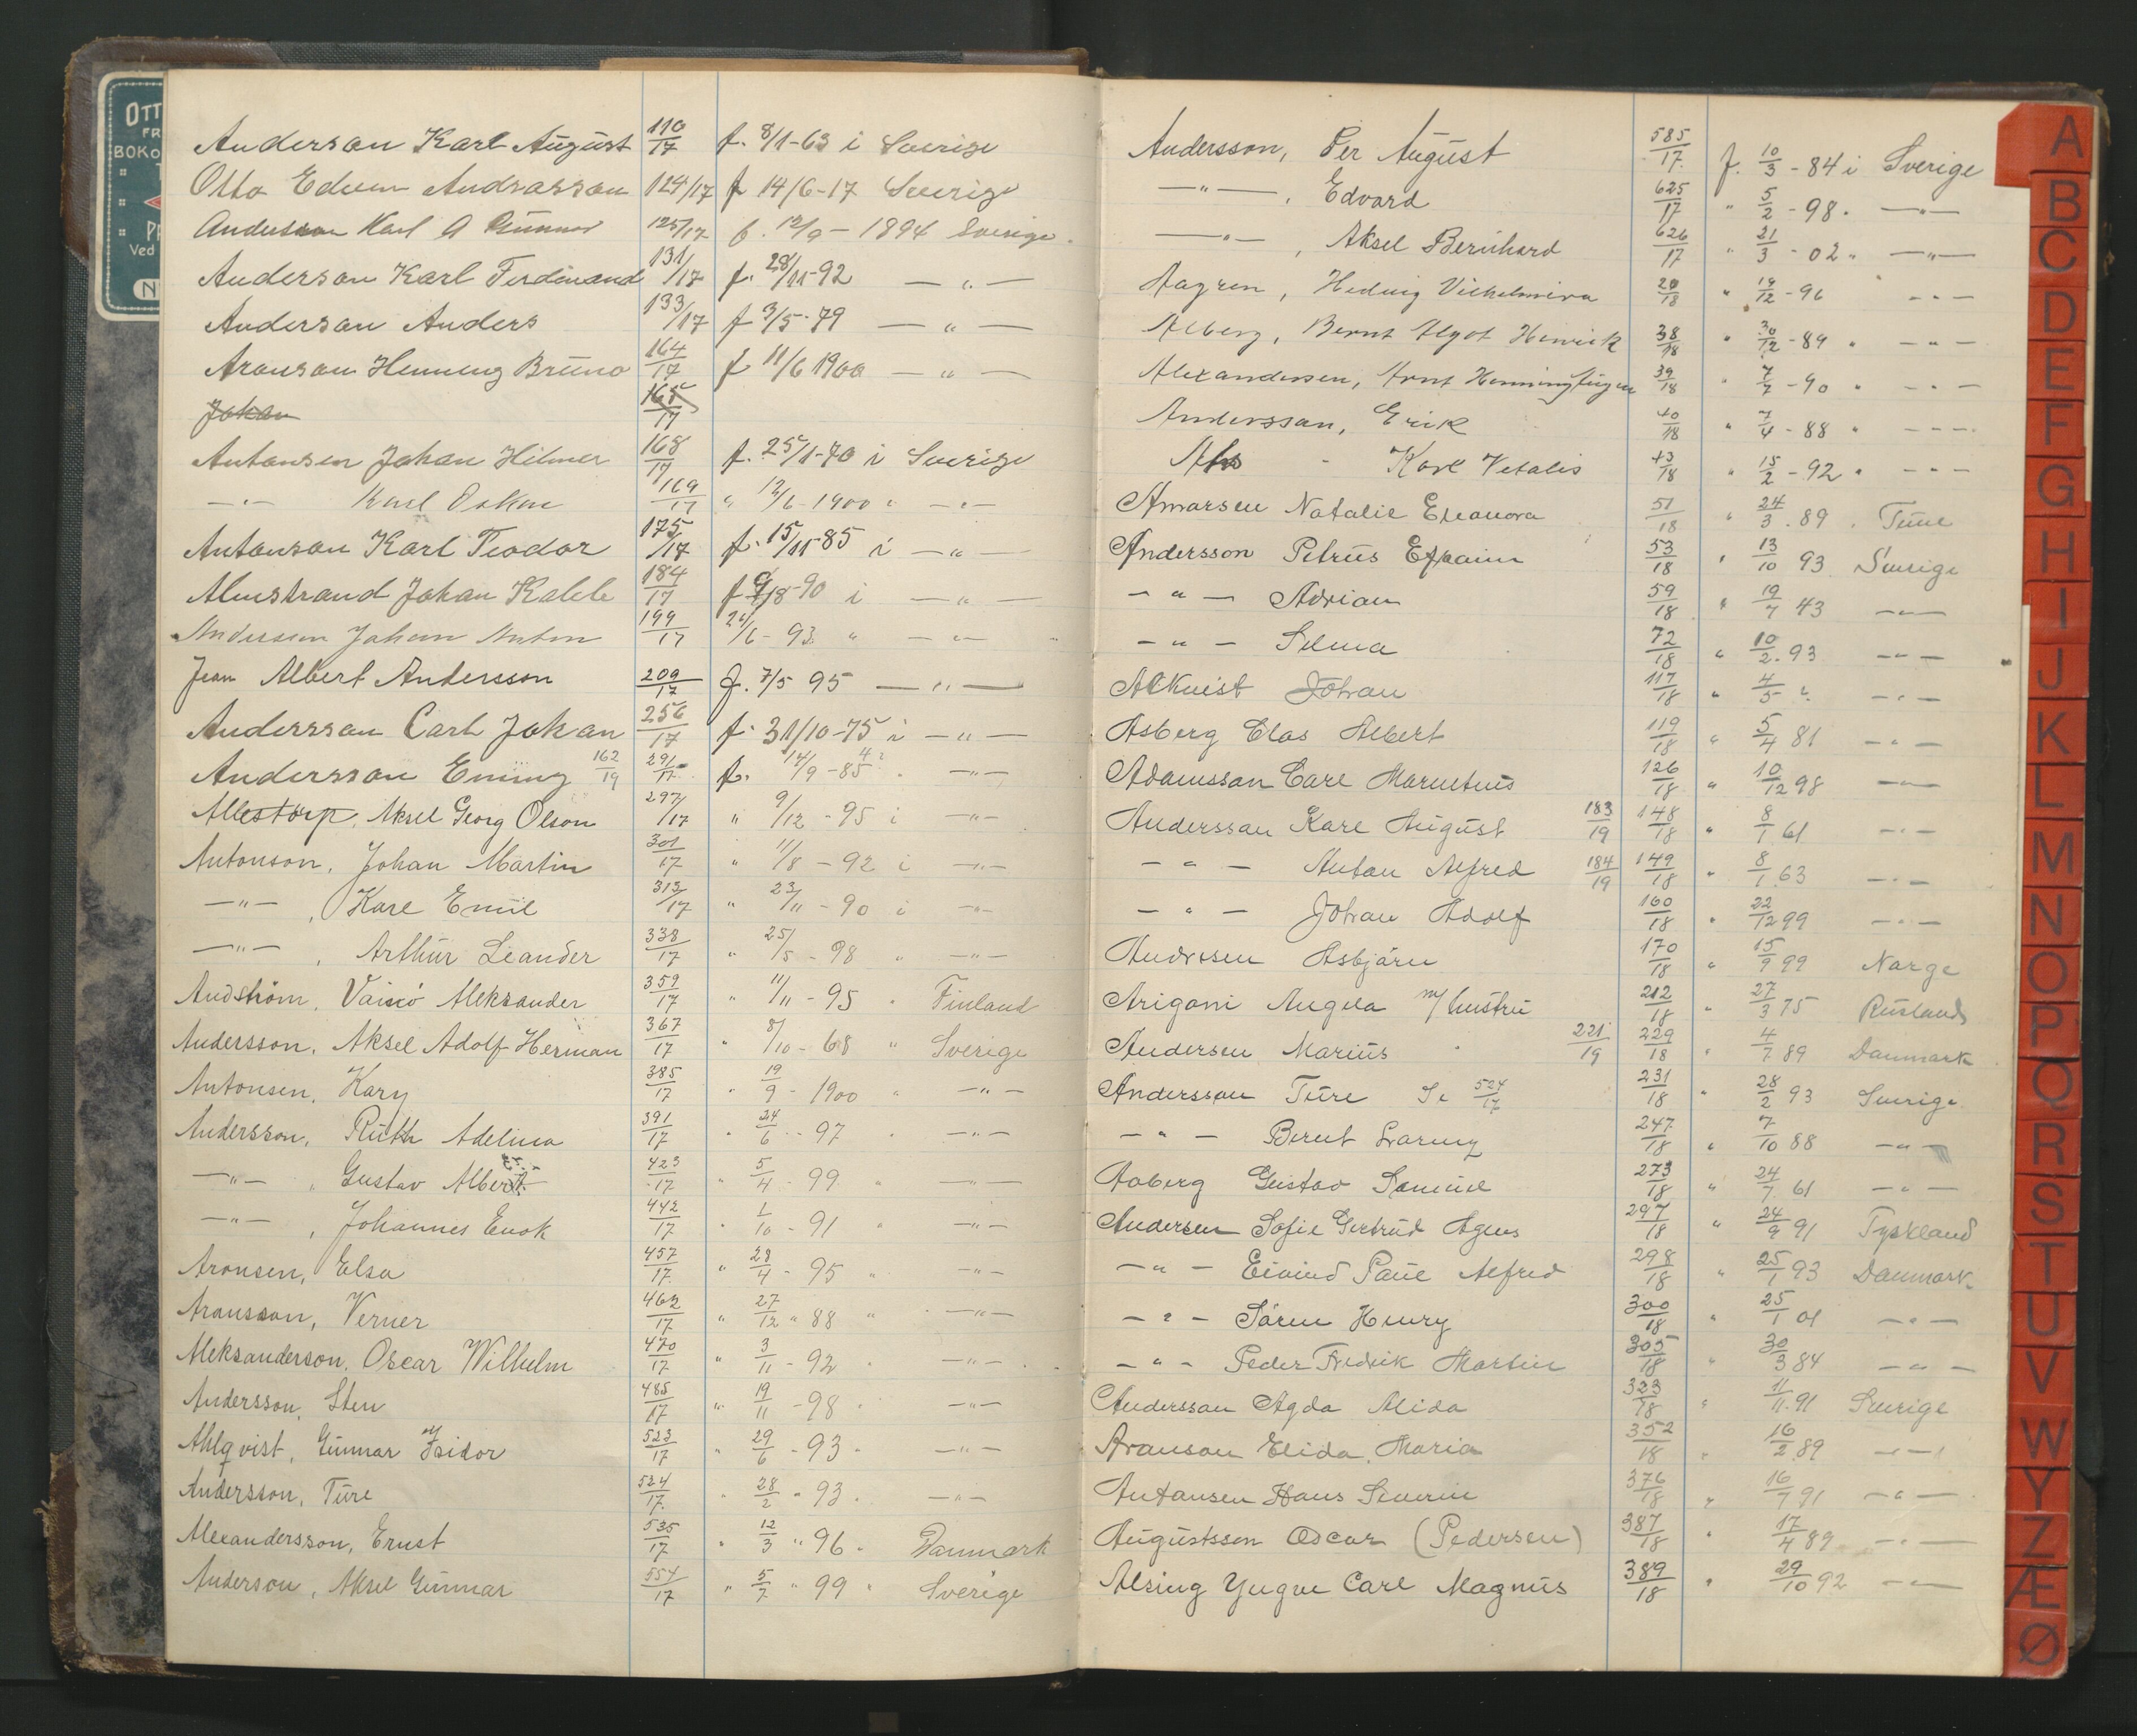 OTT
FR
BOKO
Ved
N
Anderson Karl August 110/17 f. 8/1-63 i Sverige
Otto Edvin Andreasson 124/17 f 14/6-17 Sverige
Anderson Karl A Gunnar 125/17 f. 12/9-1894 Sverige.
Anderson Karl Ferdinand 131/17 f. 28/11-92 — " —
Anderson Anders 133/17 f 3/5-79 — " —
Aronson Henning Bruno 164/17 f 11/6 1900 — " —
Johan 165/17
Antonsen Johan Hilmer 168/17 f. 25/1-70 i Sverige
— " — Karl Oskar 169/17 " 12/6-1900 " — " —
Antonson Karl Teodor 175/17 f. 15/11-85 i — " —
Almstrand Johan Kaleb 184/17 f 9/8-90 i — " —
Anderson Johan Anton 199/17 24/6-93 " — " —
Jean Albert Andersson 209/17 f. 7/5 95 — " —
Andersson Carl Johan 256/17 f. 31/10-75 i — " —
Andersson Emmy 162/19 291/17 f. 14/9-85 4? — " —
Allestorp, Aksel Georg Olson 297/17 " 9/12-95 i — " —
Antonson, Johan Martin 301/17 " 11/8-92 i — " —
— " — , Karl Emil 313/17 " 23/11-90 i — " —
— " — , Arthur Leander 338/17 " 25/5-98 " — " —
Andström, Vainö Aleksander 359/17 " 11/11-95 " Finland
Andersson, Aksel Adolf Herman 367/17 " 8/10-68 " Sverige
Antonsen, Kary 385/17 " 19/9-1900 " — " —
Andersson, Ruth Adelina 391/17 " 24/6-97 " — " —
— " — , Gustav Albert 423/17 " 5/4-99 " — " —
— " — , Johannes Enok 442/17 " 1/10-91 " — " —
Aronsen, Elsa 457/17 " 28/4-95 " — " —
Aronsson, Verner 462/17 " 27/12 " 88 " — " —
Aleksanderson, Oscar Wilhelm 470/17 " 3/11-92 " — " —
Andersson, Sten 485/17 " 19/11-98 " — " —
Ahlqvist, Gunnar Isidor 523/17 " 29/6-93 " — " —
Andersson, Ture 524/17 " 28/2 " 93 " — " —
Alexandersson, Ernst 535/17 " 12/3 " 96 " Danmark
Anderson, Aksel Gunnar 554/17 " 5/7 " 99 " Sverige
Andersson, Per August 585/17 f. 10/3-84 i Sverige
— " — , Edvard 625/17 " 5/2-98 " — " —
— " — , Aksel Bernhard 626/17 " 21/3-02 " — " —
Aagren, Hedvig Vilhelmina 20/18 " 14/12-96 " — " —
Alberg, Bernt Algot Henrick 38/18 " 30/12-89 " — " —
Alexandersen, Arnt Henning 39/18 " 7/7-90 " — " —
Anderssan, Erik 40/18 " 7/4-88 " — " —
Karl Vitalis 43/18 " 15/2-92 " — " —
Amarsen Natalie Eleanora 51/18 " 24/3.89 " Tune
Andersson Petrus Efraim 53/18 " 13/10 93 Sverige
— " — Adrian 59/18 " 19/7 43 — " —
— " — Selma 72/18 " 10/2.93 — " —
Alkvist Johan 117/18 " 4/5 " — " —
Asberg Clas Albert 119/18 " 5/4 81 — " —
Adamsson Carl 126/18 " 10/12 98 — " —
Anderssan Karl August 183/19 148/18 " 8/1 61 — " —
— " — Anton Alfred 184/19 149/18 " 8/1.63 — " —
— " — Johan Adolf 160/18 " 22/12 99 — " —
Andresen Asbjörn 170/18 " 15/9 99 Norge
Arigoni Angela m/hustru 212/18 " 27/3 75 Rusland
Andersen Marius " 221/19 229/18 " 4/7 89 Danmark
Andersson Ture Se 524/17 231/18 " 28/2 93 Sverige
— " — Bernt 247/18 " 7/10 88 — " —
Aaberg Gustav Samuel 273/18 " 24/7 61 — " —
Andersen Sofie Gertrud Agnes 297/18 " 24/9 91 Tyskland
— " — Eivind Paul Alfred 298/18 " 25/1 93 Danmark
— " — Sören Henry 300/18 " 25/1 01 — " —
— " — Peder Fredrik Martin 305/18 " 30/3 84 — " —
Anderssan Agda Alida 323/18 " 11/11.91 Sverige
Aronson Elida Maria 352/18 " 16/2 89 — " —
Antonsen Hans Severin 376/18 " 16/7 91 — " —
Augustsson Oscar (Pedersen) 387/18 " 17/4 89 — " —
Alsing Yngve Carl Magnus 389/18 " 29/10 92 — " —
A
B
C
D
E
F
G
H
I
J
K
L
M
N
O
P
Q
R
S
T
U
V
W
Y
Z
Æ
Ø